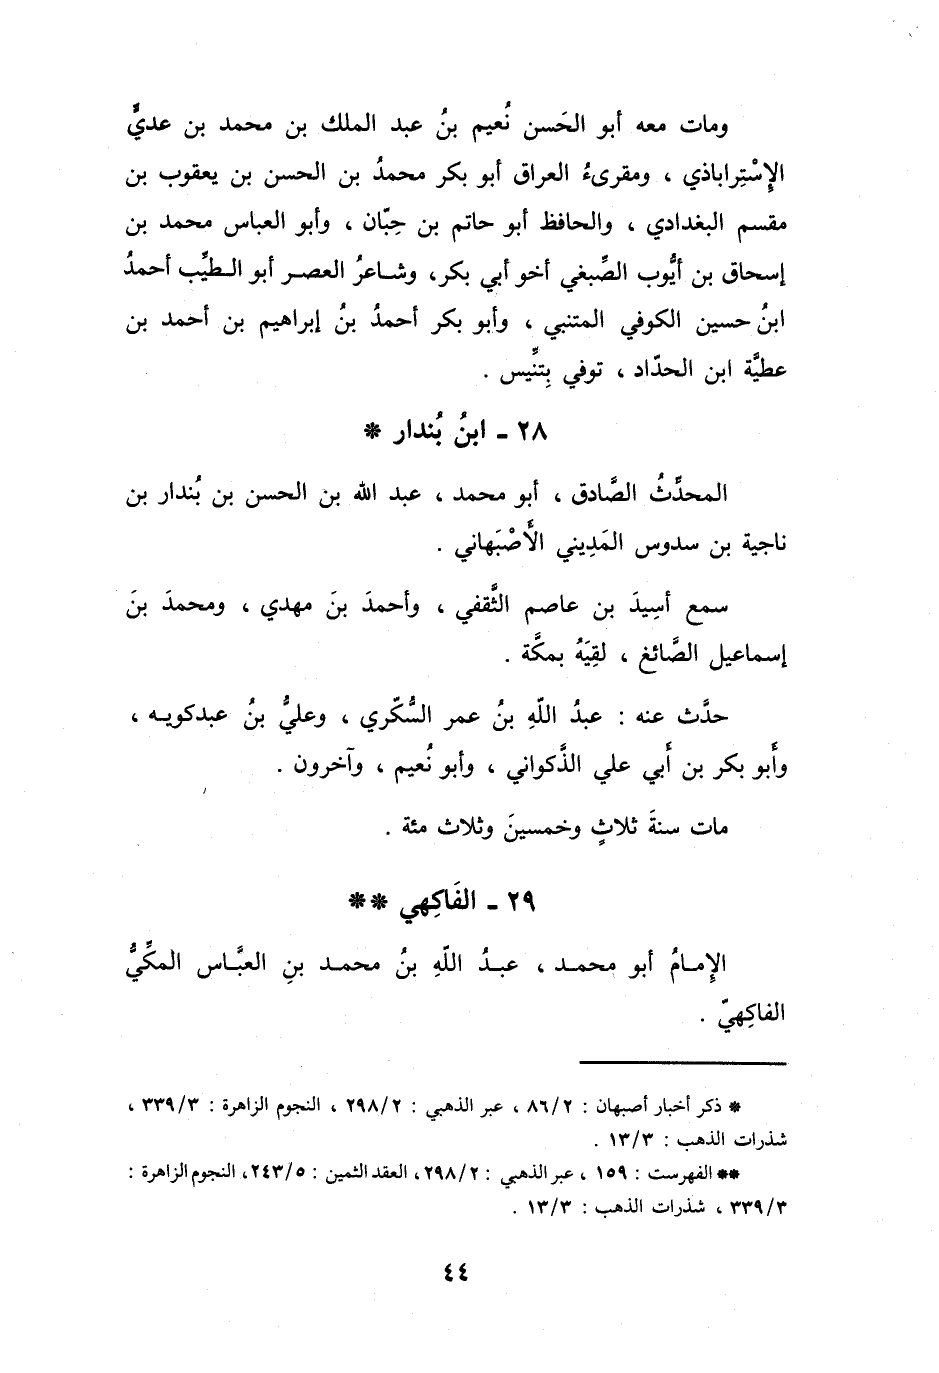 ومات معه أبو الحَسن نُعيم بنُ عبد الملك بن محمد بن عديٍّ
الإسْتِراباذي ، ومقرىءُ العراق أبو بكر محمدُ بن الحسن بن يعقوب بن
مقسم البغدادي ، والحافظ أبو حاتم بن حِبّان ، وأبو العباس محمد بن
إسحاق بن أيُّوب الصِّبغي أخو أبي بكر، وشاعرُ العصر أبو الطيِّب أحمدُ
ابنُ حسين الكوفي المتنبي ، وأبو بكر أحمدُ بنُ إبراهيم بن أحمد بن
عطيَّة ابن الحدّاد ، توفي بِتنِّيس .
٢٨ ـ ابنُ بُندار *
المحدِّثُ الصَّادق ، أبو محمد ، عبد الله بن الحسن بن بُندار بن
ناجية بن سدوس المَدِيني الأَصْبَهاني .
سمع أسِيدَ بن عاصم الثَّقفي ، وأحمدَ بنَ مهدي ، ومحمدَ بنَ
إسماعيل الصَّائغ ، لقِيَهُ بمكَّة .
حدَّث عنه : عبدُ اللّهِ بنُ عمر السُّكّري ، وعليُّ بنُ عبدكويه ،
وأَبو بكر بن أَبي علي الذَّكواني ، وأبو نُعيم ، وآخرون .
مات سنةَ ثلاثٍ وخمسينَ وثلاث مئة .
٢٩ ـ الفَاكِهي **
الإمامُ أبو محمد ، عبدُ اللّهِ بنُ محمد بنِ العبَّاس المكِّيُّ
الفاكِهيّ .
* ذكر أخبار أصبهان : ٨٦/٢ ، عبر الذهبي : ٢٩٨/٢ ، النجوم الزاهرة : ٣٣٩/٣ ،
شذرات الذهب : ١٣/٣ .
** الفهرست : ١٥٩ ، عبر الذهبي : ٢٩٨/٢، العقد الثمين : ٢٤٣/٥، النجوم الزاهرة :
٣٣٩/٣ ، شذرات الذهب : ١٣/٣ .
٤٤